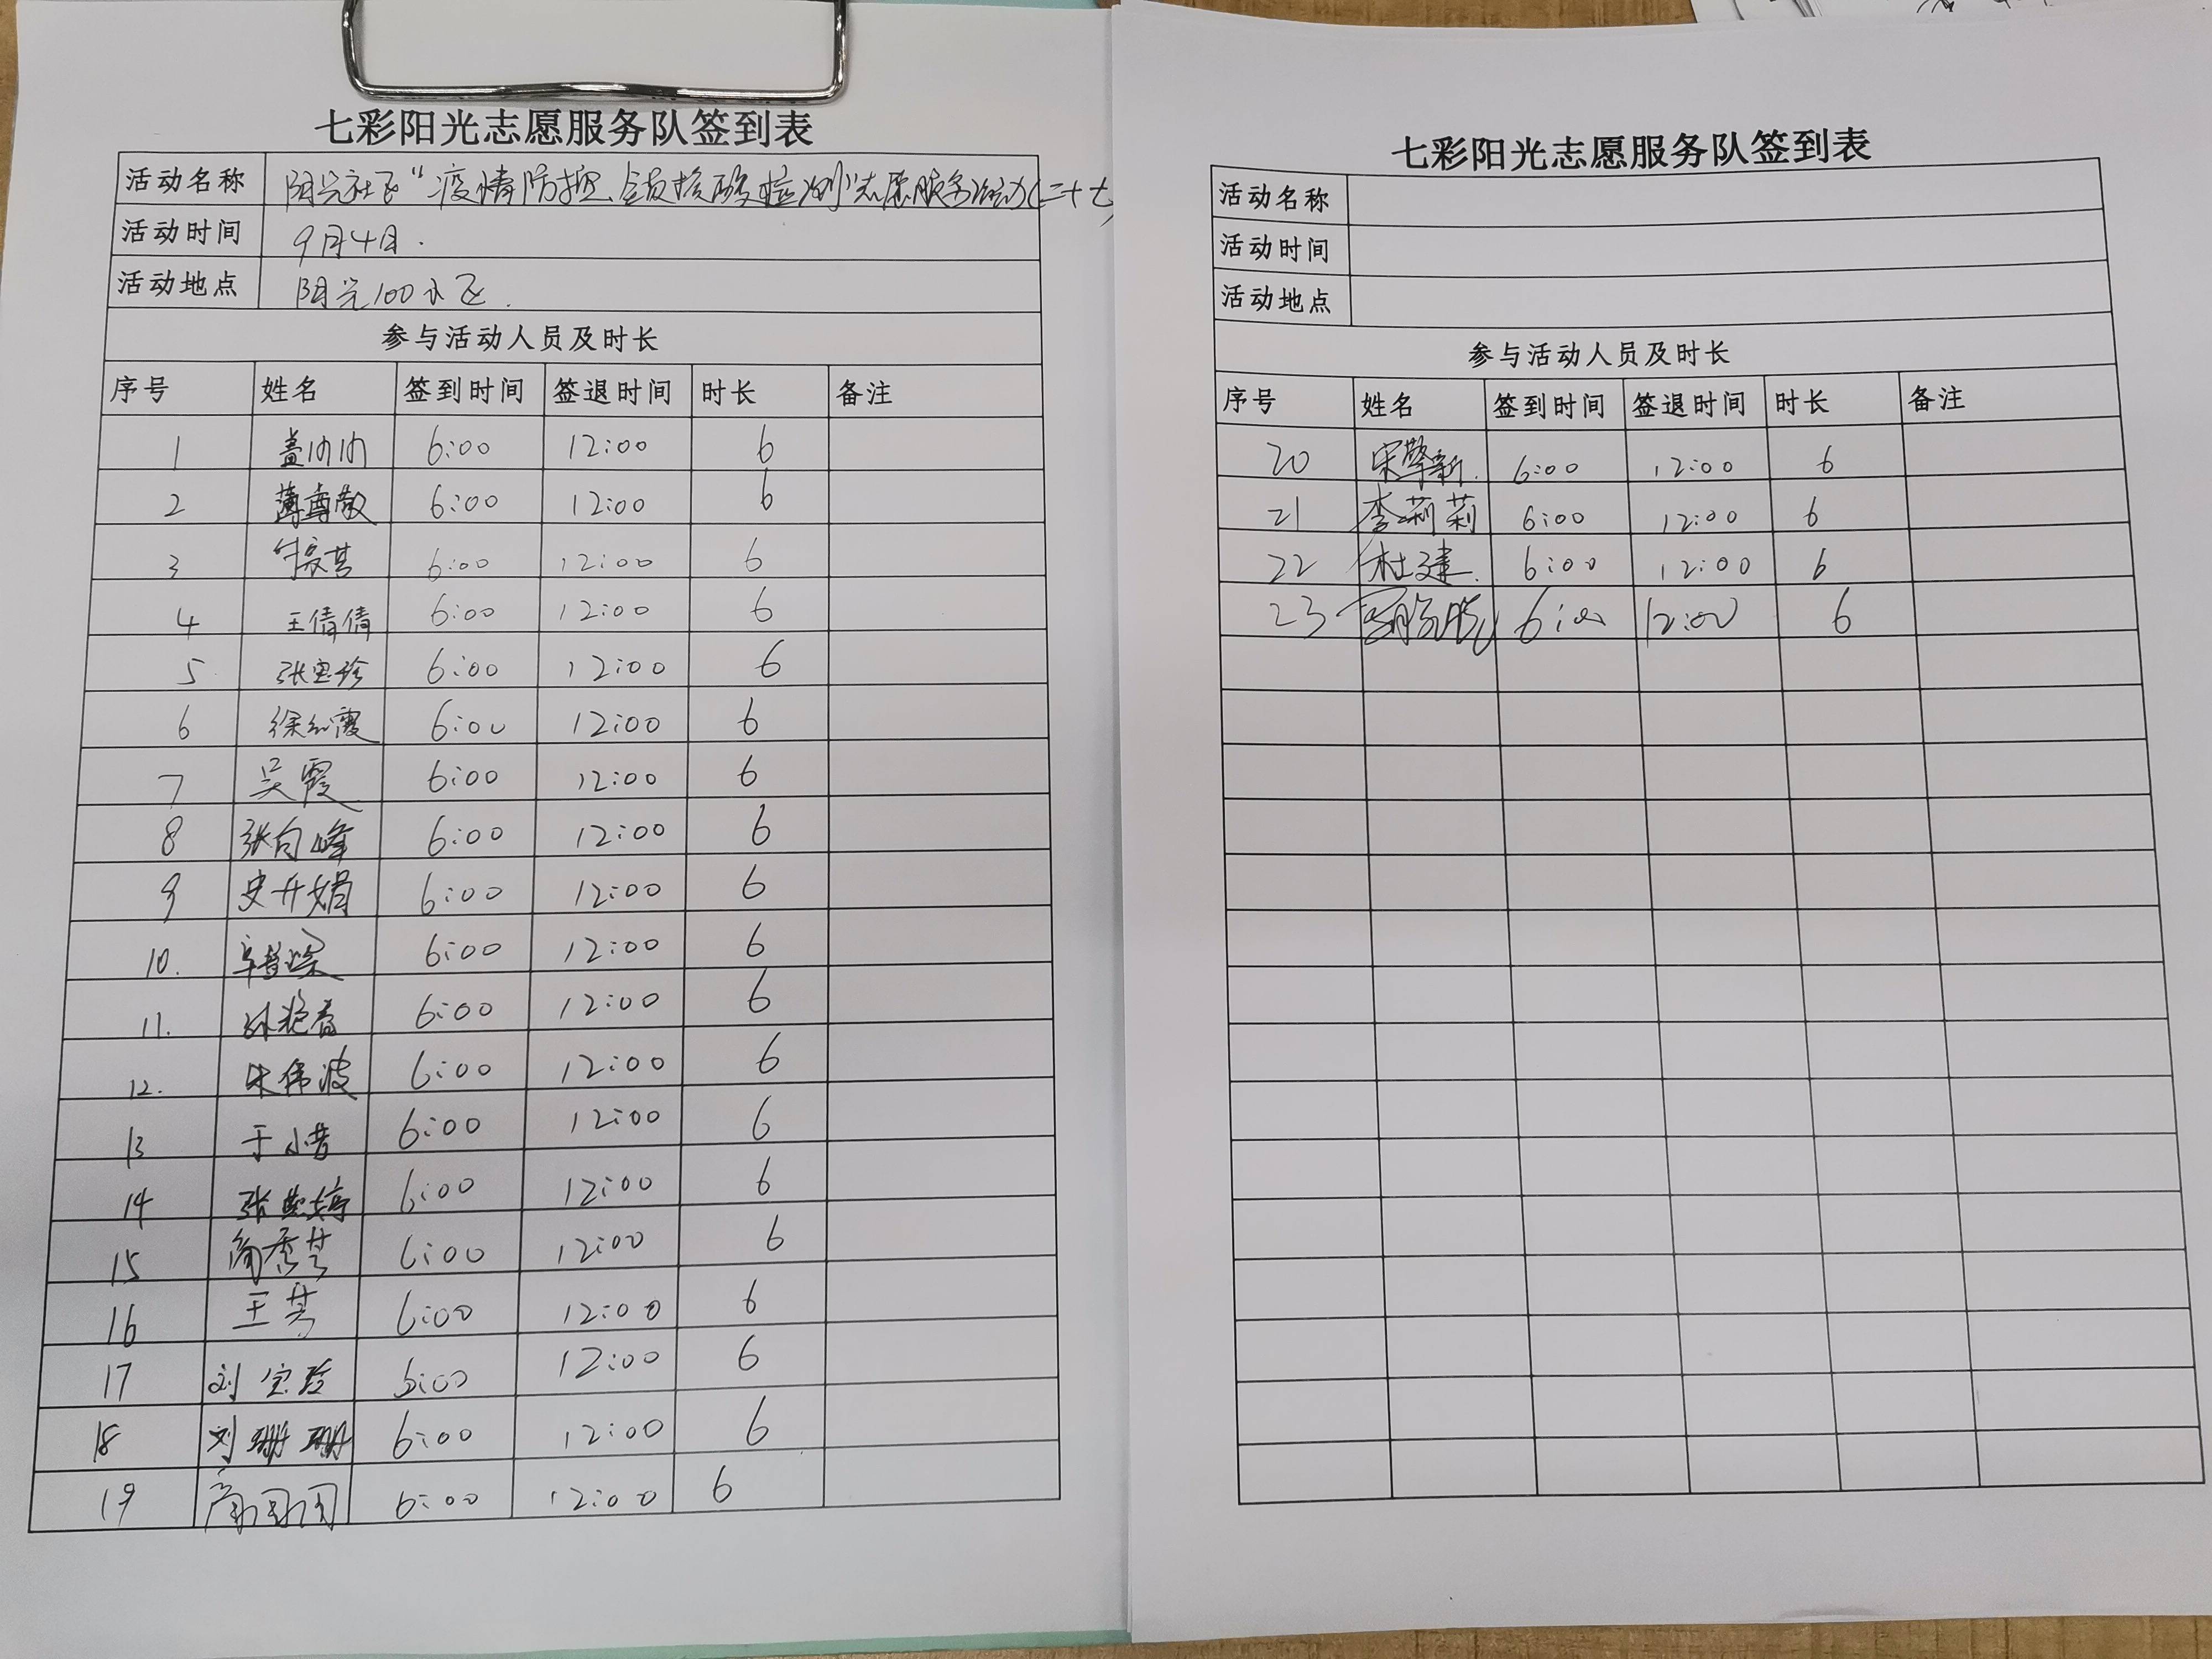 七彩阳光志愿服务队签到表
活动名称 阳光社区"疫情防控、全员核酸检测"志愿服务活动(二十七)
活动时间 9月4日.
活动地点 阳光100小区.
参与活动人员及时长
序号 姓名 签到时间 签退时间 时长 备注
1 盖帅帅 6:00 12:00 6
2 薄尊敬 6:00 12:00 6
3 6:00 12:00 6
4 王倩倩 6:00 12:00 6
5 张宝珍 6:00 12:00 6
6 徐红霞 6:00 12:00 6
7 吴霞 6:00 12:00 6
8 张向峰 6:00 12:00 6
9 史升娟 6:00 12:00 6
10. 6:00 12:00 6
11. 孙艳春 6:00 12:00 6
12. 宋伟波 6:00 12:00 6
13 于小昔 6:00 12:00 6
14 张燕婷 6:00 12:00 6
15 商秀芝 6:00 12:00 6
16 王芳 6:00 12:00 6
17 刘宝珍 6:00 12:00 6
18 刘珊珊 6:00 12:00 6
19 商园园 6:00 12:00 6
七彩阳光志愿服务队签到表
活动名称
活动时间
活动地点
参与活动人员及时长
序号 姓名 签到时间 签退时间 时长 备注
20 宋擎新. 6:00 12:00 6
21 李莉莉 6:00 12:00 6
22 杜建. 6:00 12:00 6
23 6:00 12:00 6